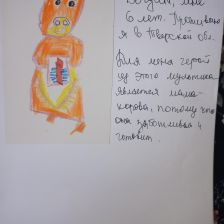 Богдан, мне
6 лет. Проживаю
я в Тверской обл.
Для меня герой
из этого мультика
является мама-
корова, потому что
она заботливая и
готовит.